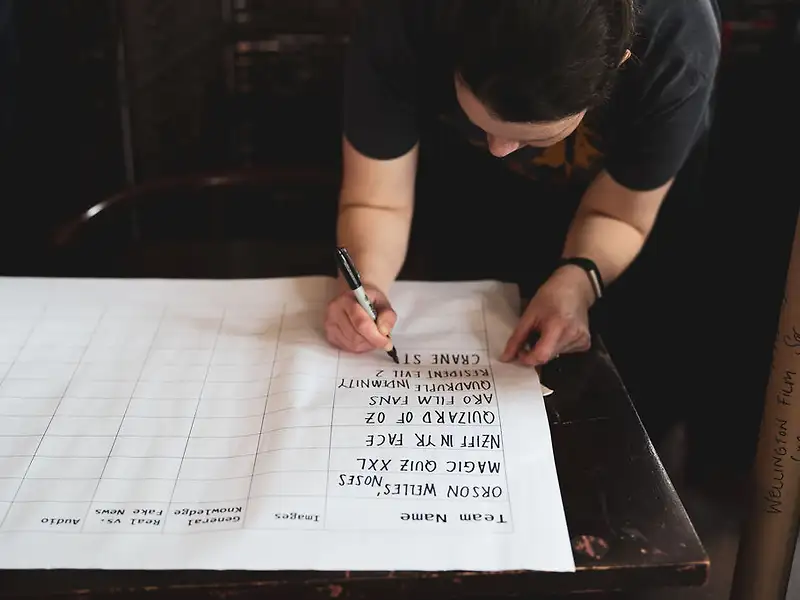 Team Name
Images
General
Knowledge
Real vs.
Fake News
Audio
ORSON WELLES' NOSES
MAGIC QUIZ XXL
NZIFF IN YR FACE
QUIZARD OF OZ
ARO FILM FANS
QUADRUPLE INDEMNITY
RESIDENT EVIL 2
CRANE ST
WELLINGTON FILM